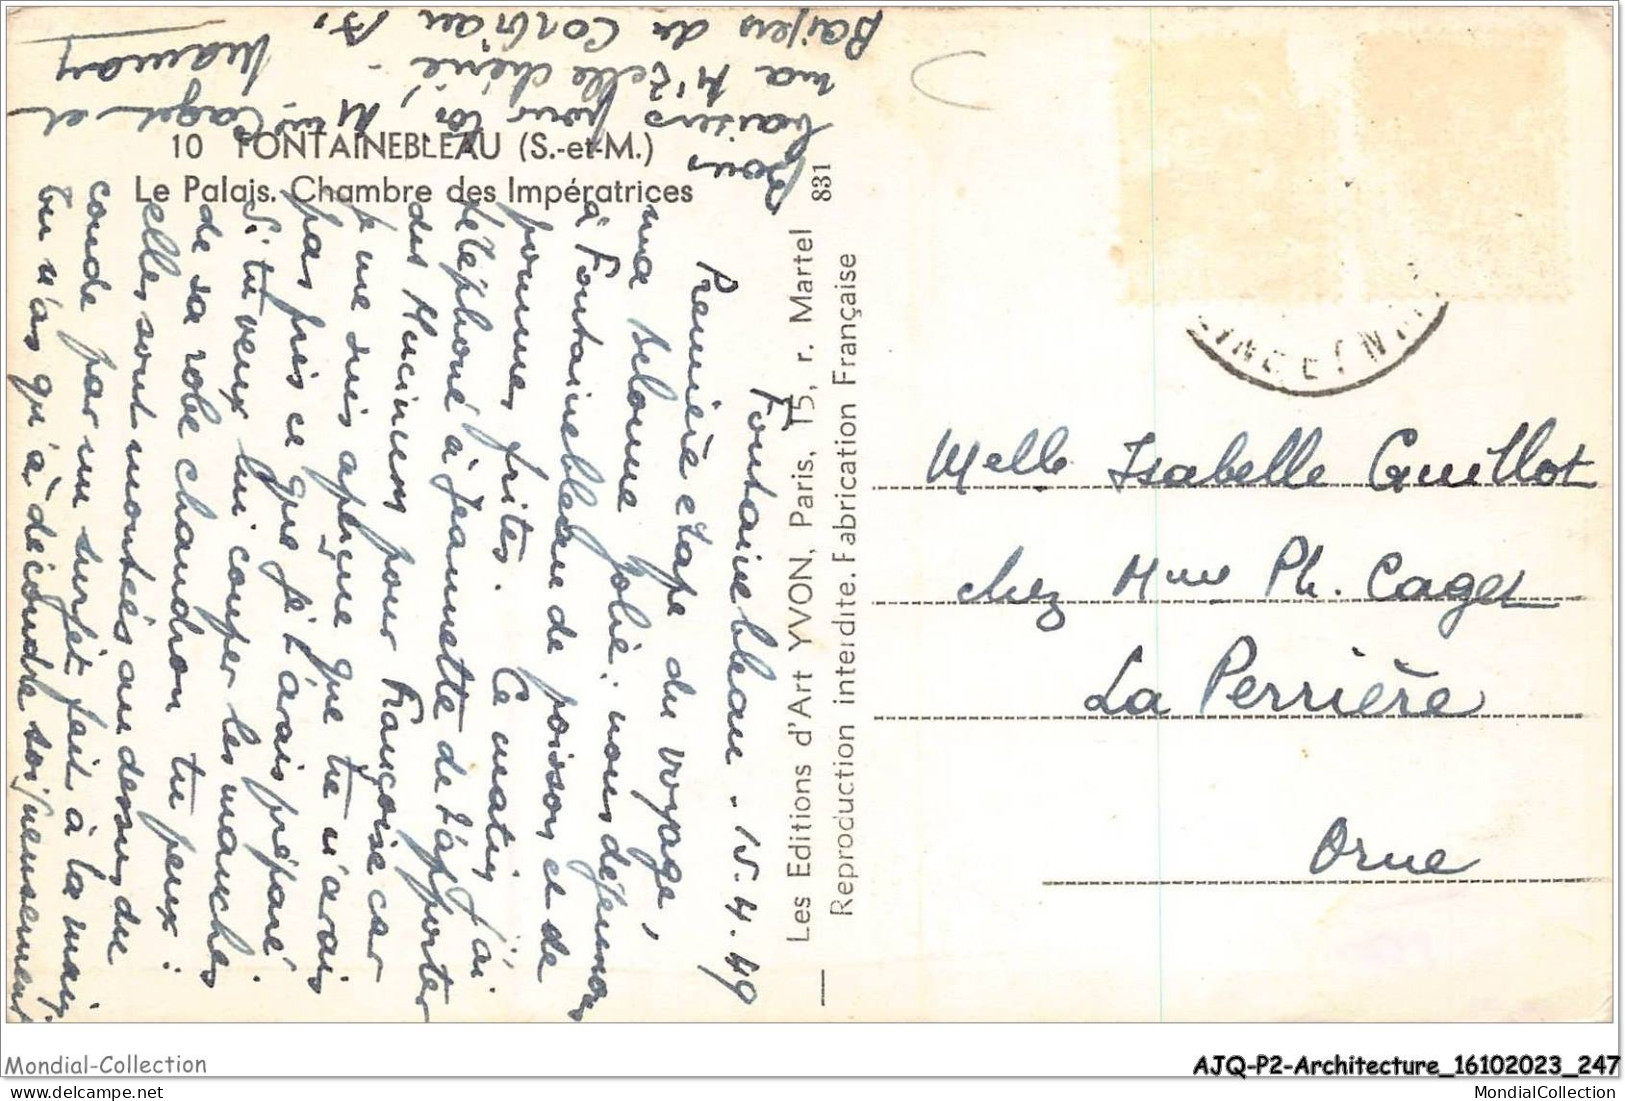 10 FONTAINEBLEAU (S.-et-M.)
Le Palais. Chambre des Impératrices
Fontainebleau. 15.4.49
Première étape du voyage,
ma bien jolie : nous déjeunons
à Fontainebleau de poisson et de
pommes frites. Ce matin, j'ai
téléphoné à Jeannette de t'apporter
des pour Françoise car
je me suis aperçue que tu n'avais
pas pris ce que je t'avais préparé
Si tu veux lui couper les manches
de sa robe chaudron tu peux :
elles sont montées au dessus du
coude par un surjet fait à la main
tu n'as qu'à découdre soigneusement
Bons
baisers pour toi, Mme Caget et
ma chérie - Maman
Baisers de
Les Editions d'Art YVON, Paris, 15, r. Martel 831
Reproduction interdite. Fabrication Française
Melle Isabelle Guillot
chez Mme Ph. Caget
La Perrière
Orne
Mondial-Collection
AJQ-P2-Architecture_16102023_247
delcampe.net
MondialCollection